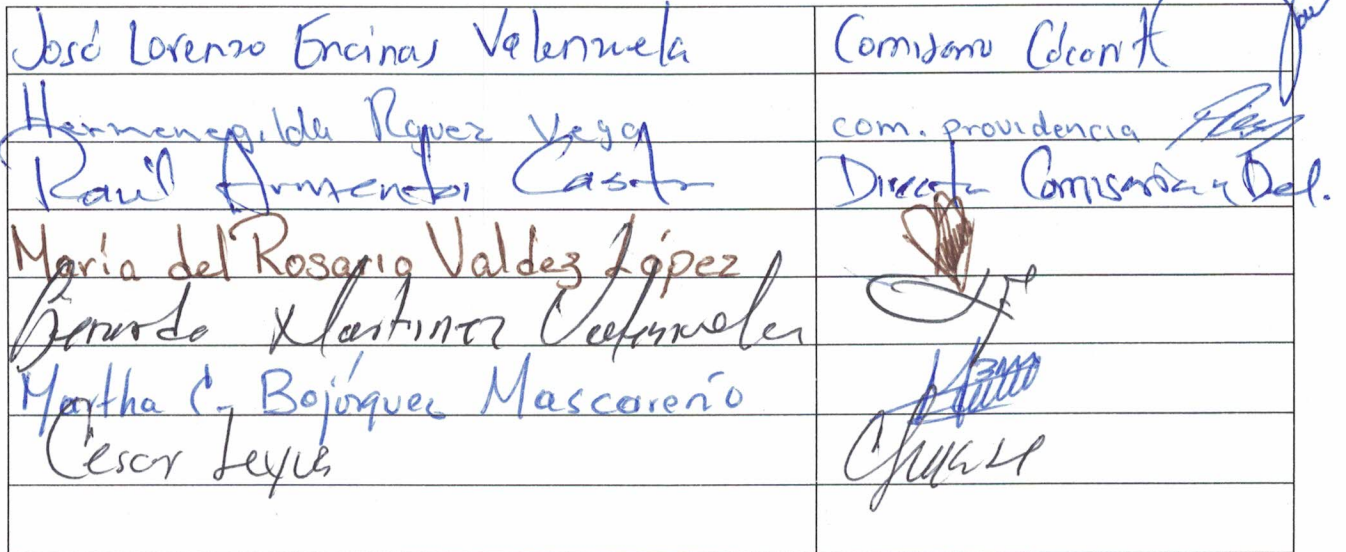 José Lorenzo Encinas Valenzuela Comisario Cócorit
Hermenegilda Rguez Vega com. providencia
Raúl Armenta Castro Director Comisarías y Del.
María del Rosario Valdez López
Gerardo Martinez Valenzuela
Martha C. Bojórquez Mascareño
Cesar Leyva